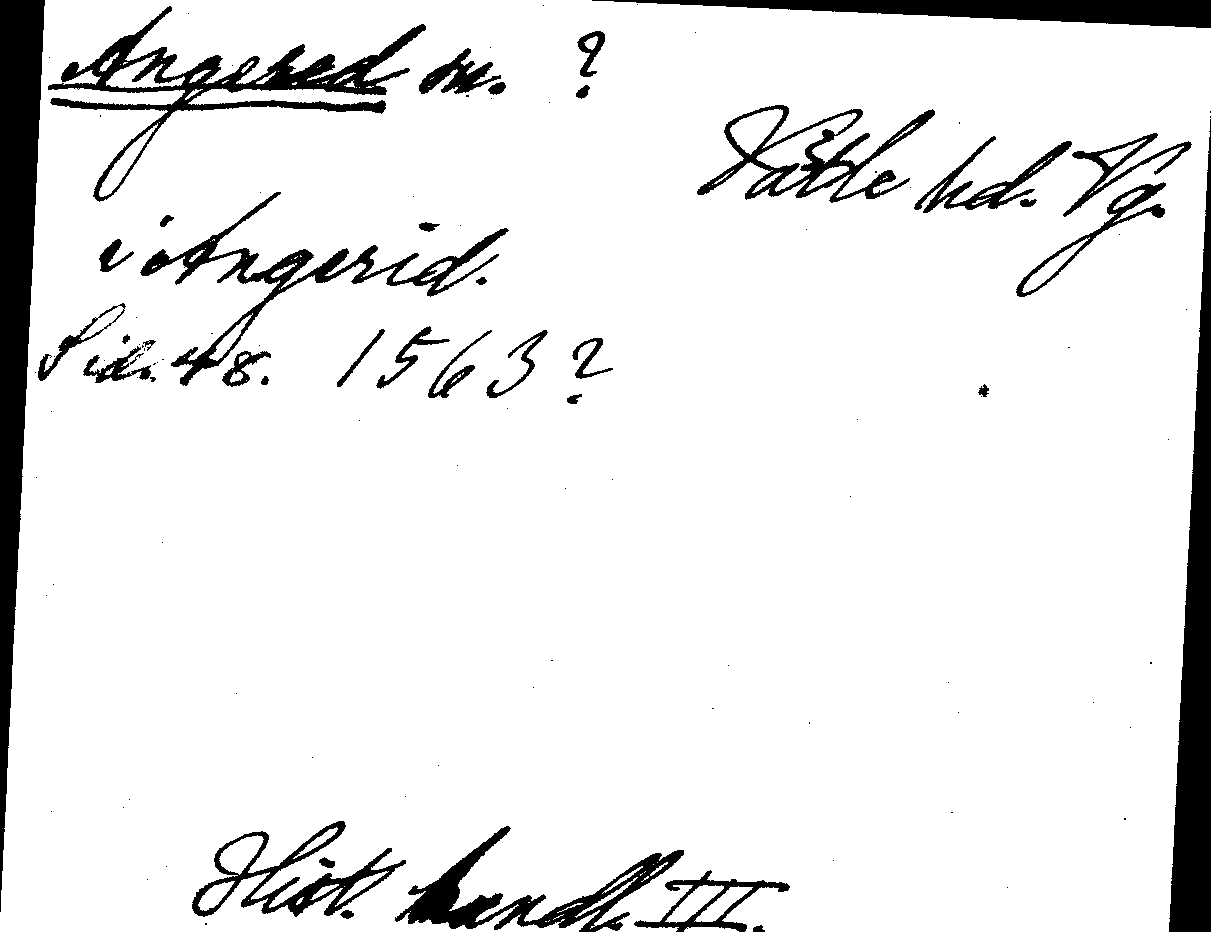 Angered sn. ?
Vättle hd. Vg.
i Angerid.
Sid. 48. 1563?
Hist. handl. III.